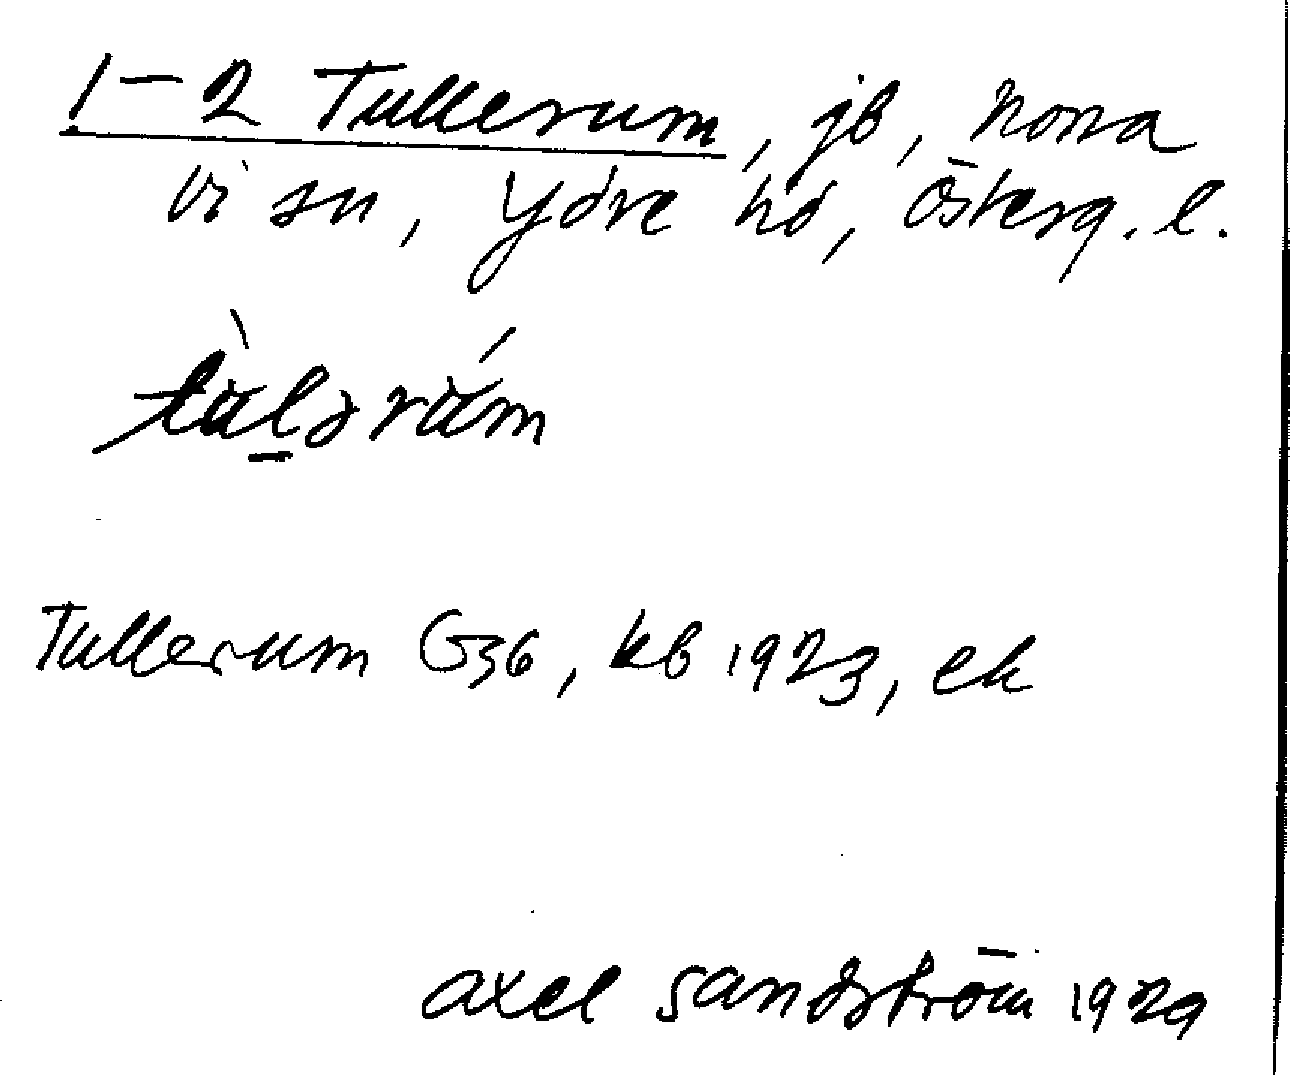 1-2 Tullerum, jb, norra
vi sn, ydre hd, österg. l.
tùlərúm
Tullerum G36, kb 1923, ek
axel sandström 1929